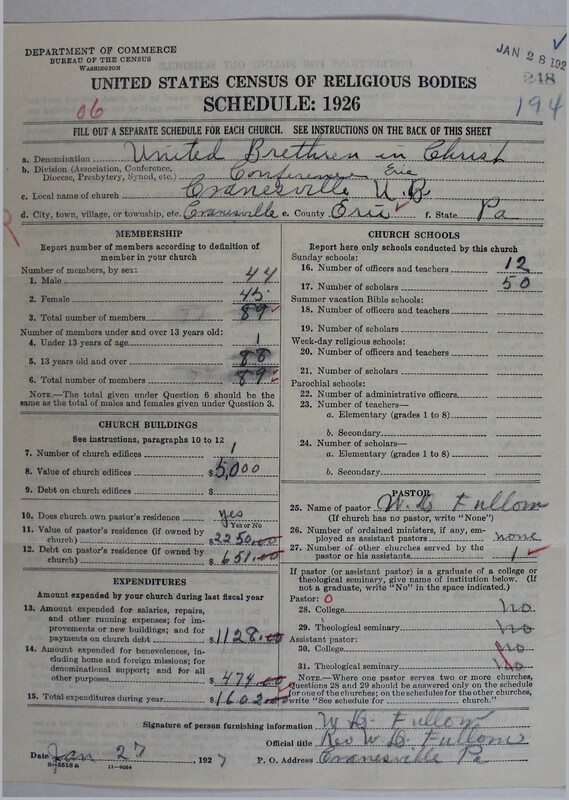 DEPARTMENT OF COMMERCE
BUREAU OF THE CENSUS
WASHINGTON
JAN 28 192
248
194
UNITED STATES CENSUS OF RELIGIOUS BODIES
SCHEDULE: 1926
06
FILL OUT A SEPARATE SCHEDULE FOR EACH CHURCH. SEE INSTRUCTIONS ON THE BACK OF THIS SHEET
a. Denomination United Brethren in Christ
b. Division (Association, Conference, Diocese, Presbytery, Synod, etc.) Conference Erie
c. Local name of church Cranesville U.B
d. City, town, village, or township, etc. Cranesville e. County Erie f. State Pa
MEMBERSHIP
Report number of members according to definition of member in your church
Number of members, by sex:
1. Male 44
2. Female 45
3. Total number of members 89
Number of members under and over 13 years old:
4. Under 13 years of age 1
5. 13 years old and over 88
6. Total number of members 89
NOTE.—The total given under Question 6 should be the same as the total of males and females given under Question 3.
CHURCH BUILDINGS
See instructions, paragraphs 10 to 12
7. Number of church edifices 1
8. Value of church edifices $5,000
9. Debt on church edifices $
10. Does church own pastor's residence yes
Yes or No
11. Value of pastor's residence (if owned by church) $2250.00
12. Debt on pastor's residence (if owned by church) $651.00
EXPENDITURES
Amount expended by your church during last fiscal year
13. Amount expended for salaries, repairs, and other running expenses; for improvements or new buildings; and for payments on church debt $1128.00
14. Amount expended for benevolences, including home and foreign missions; for denominational support; and for all other purposes $474.00
15. Total expenditures during year $1602.00
CHURCH SCHOOLS
Report here only schools conducted by this church
Sunday schools:
16. Number of officers and teachers 12
17. Number of scholars 50
Summer vacation Bible schools:
18. Number of officers and teachers
19. Number of scholars
Week-day religious schools:
20. Number of officers and teachers
21. Number of scholars
Parochial schools:
22. Number of administrative officers
23. Number of teachers—
a. Elementary (grades 1 to 8)
b. Secondary
24. Number of scholars—
a. Elementary (grades 1 to 8)
b. Secondary
PASTOR
25. Name of pastor W. G. Fullom
(If church has no pastor, write "None")
26. Number of ordained ministers, if any, employed as assistant pastors none
27. Number of other churches served by the pastor or his assistants 1
If pastor (or assistant pastor) is a graduate of a college or theological seminary, give name of institution below. (If not a graduate, write "No" in the space indicated.)
Pastor: 0
28. College no
29. Theological seminary no
Assistant pastor:
30. College no
31. Theological seminary no
NOTE.—Where one pastor serves two or more churches, Questions 28 and 29 should be answered only on the schedule for one of the churches; on the schedules for the other churches, write "See schedule for church."
Signature of person furnishing information W G. Fullom
Official title Rev W G Fullom
Date Jan 27, 1927 P. O. Address Cranesville Pa
8—5518 a 11—9064